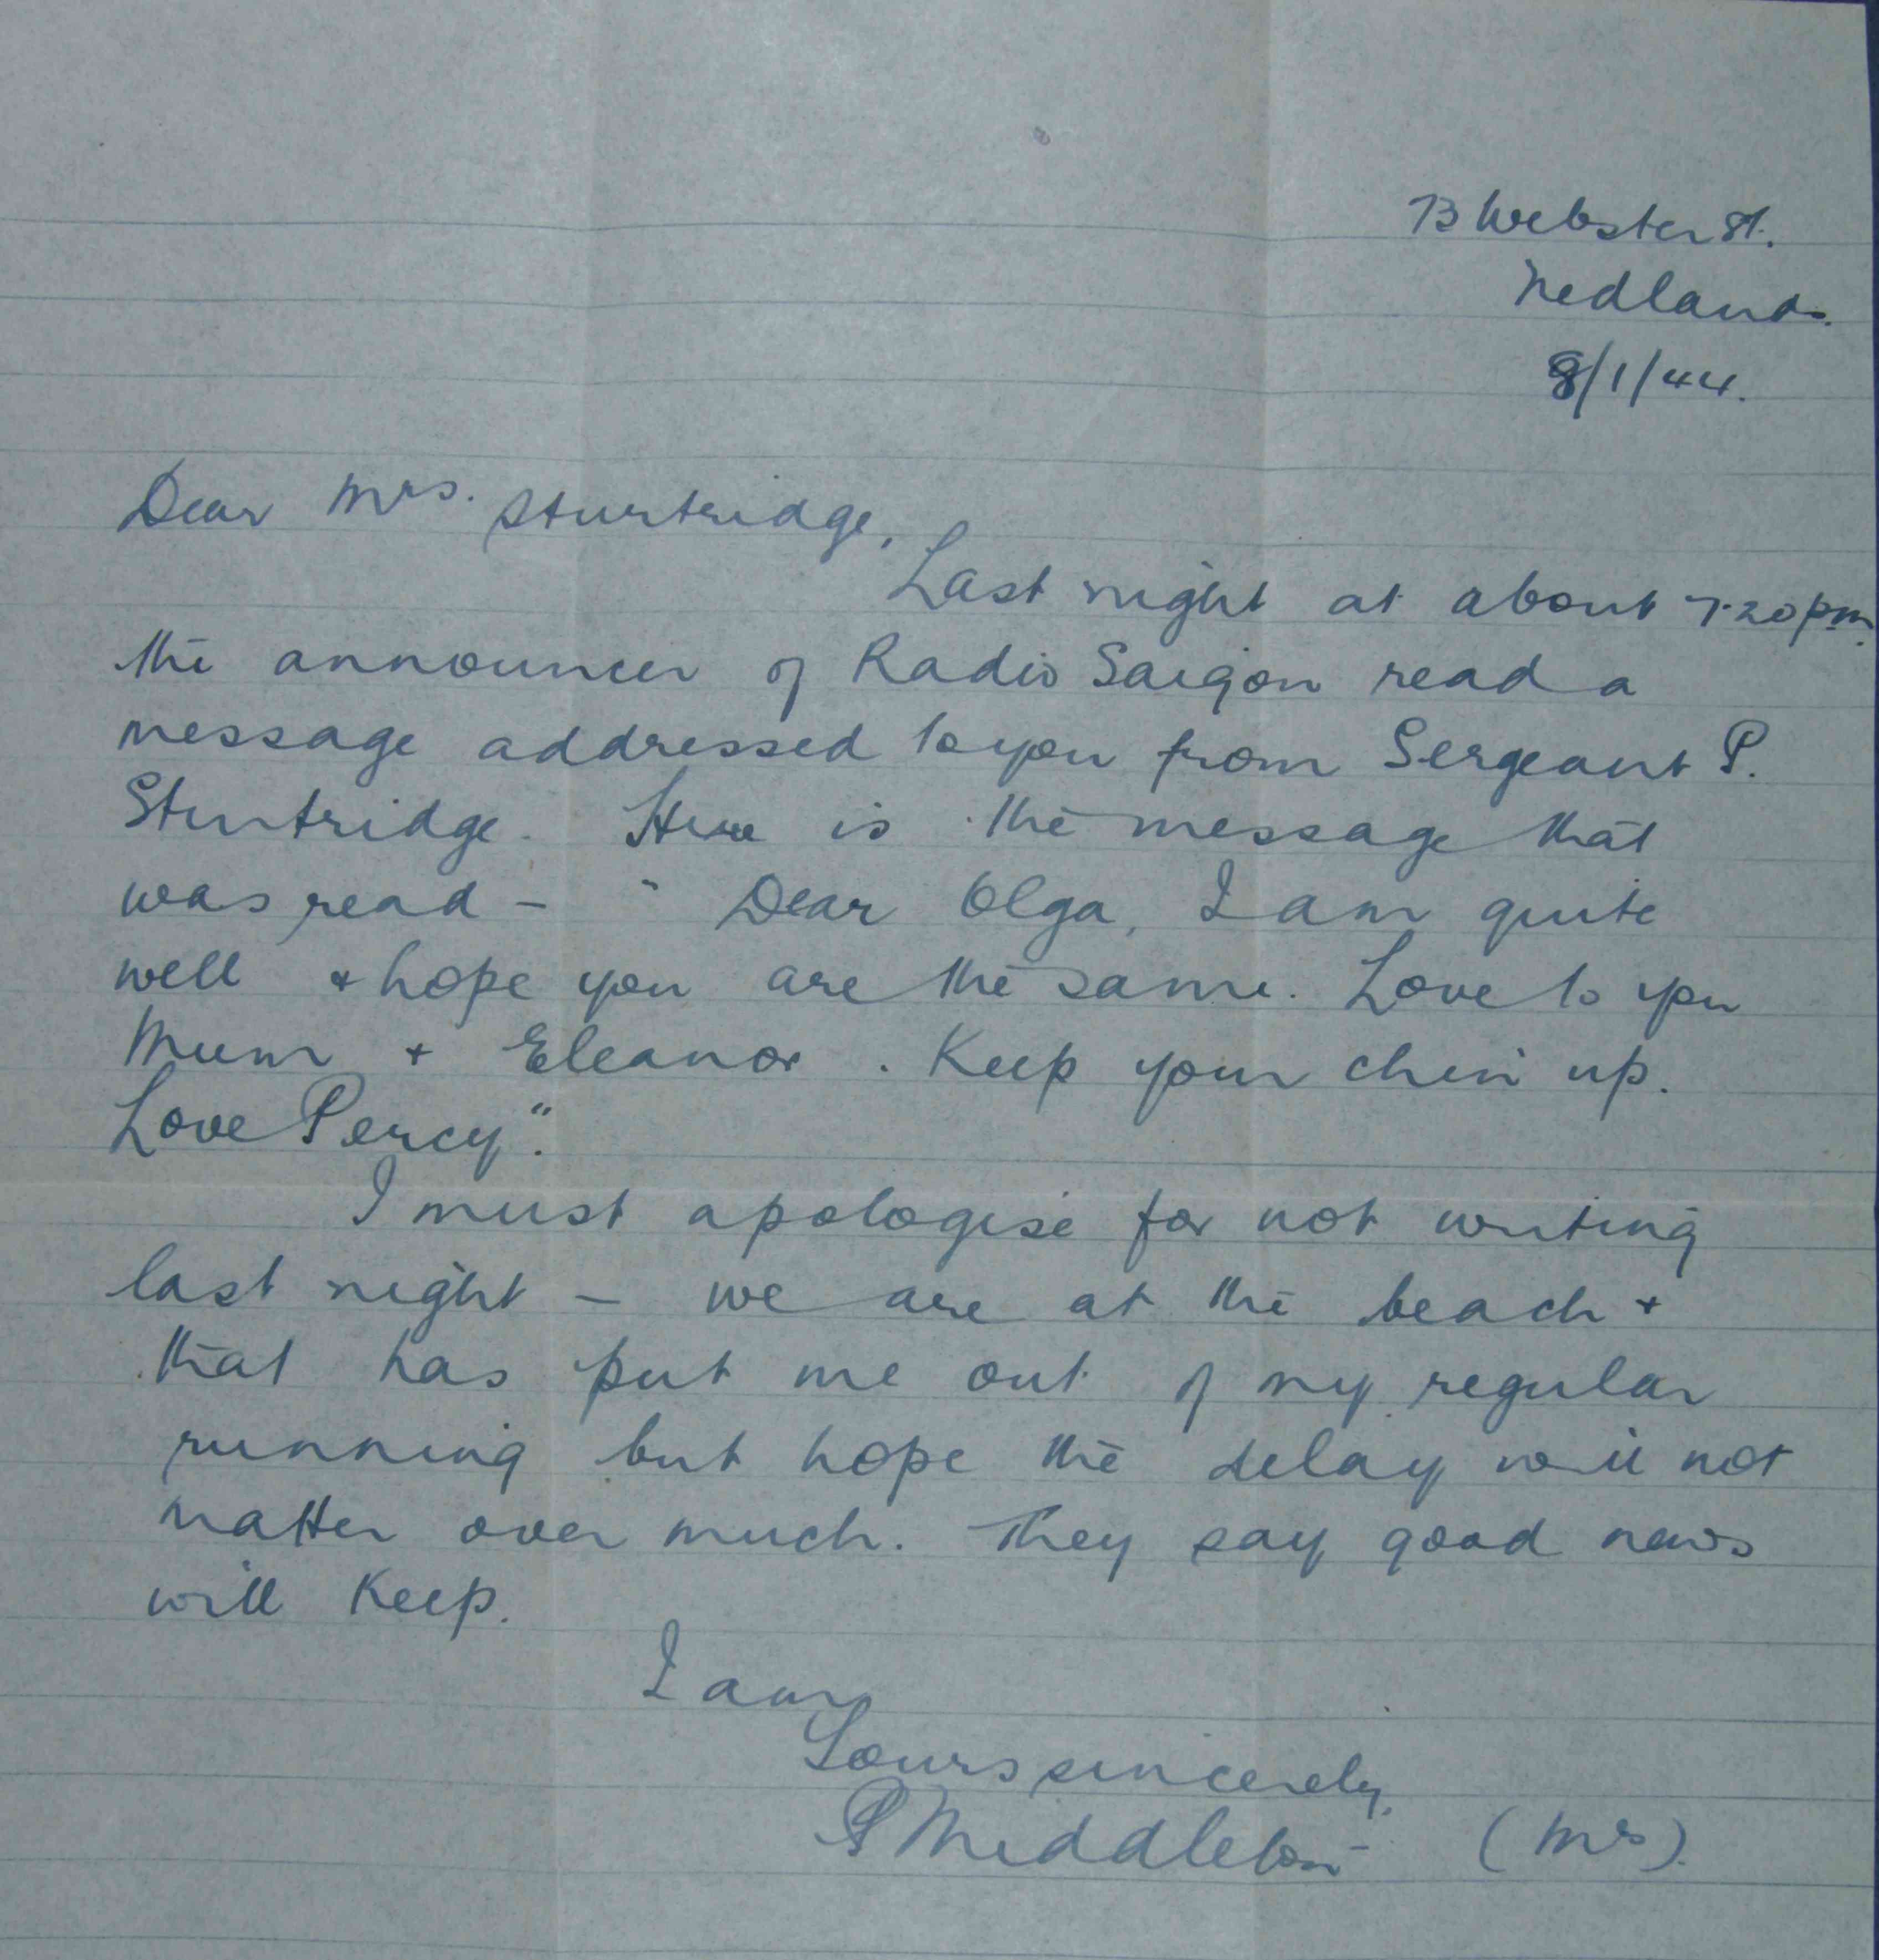 73 Webster St.
Nedlands.
8/1/44.
Dear Mrs. Sturtridge,
Last night at about 7.20 pm.
the announcer of Radio Saigon read a
message addressed to you from Sergeant P.
Sturtridge. Here is the message that
was read – " Dear Olga, I am quite
well & hope you are the same. Love to you
Mum & Eleanor. Keep your chin up.
Love Percy".
I must apologise for not writing
last night – we are at the beach &
that has put me out of my regular
running but hope the delay will not
matter over much. They say good news
will keep.
I am
Yours sincerely,
Middleton (Mrs).